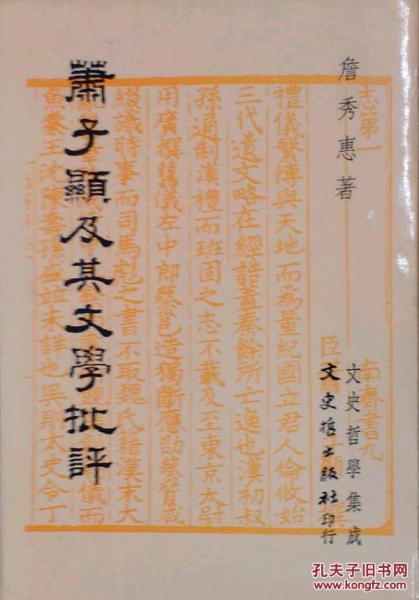 詹秀惠著
蕭子顯及其文學批評
文史哲學集成
文史哲出版社印行
志第一
南齊書九
臣
禮儀繁博與天地而為量紀國立君人倫攸始
三代遺文略在經誥蓋秦餘所亡逸也漢初叔
孫通制漢禮而班固之志不載及至東京太尉
胡廣撰舊儀左中郎蔡邕造獨斷應劭蔡質咸
綴識時事而司馬彪之書不取魏氏籍漢末大
魚豢王沈陳壽孫盛並未詳也吳則太史令丁
孔夫子旧书网